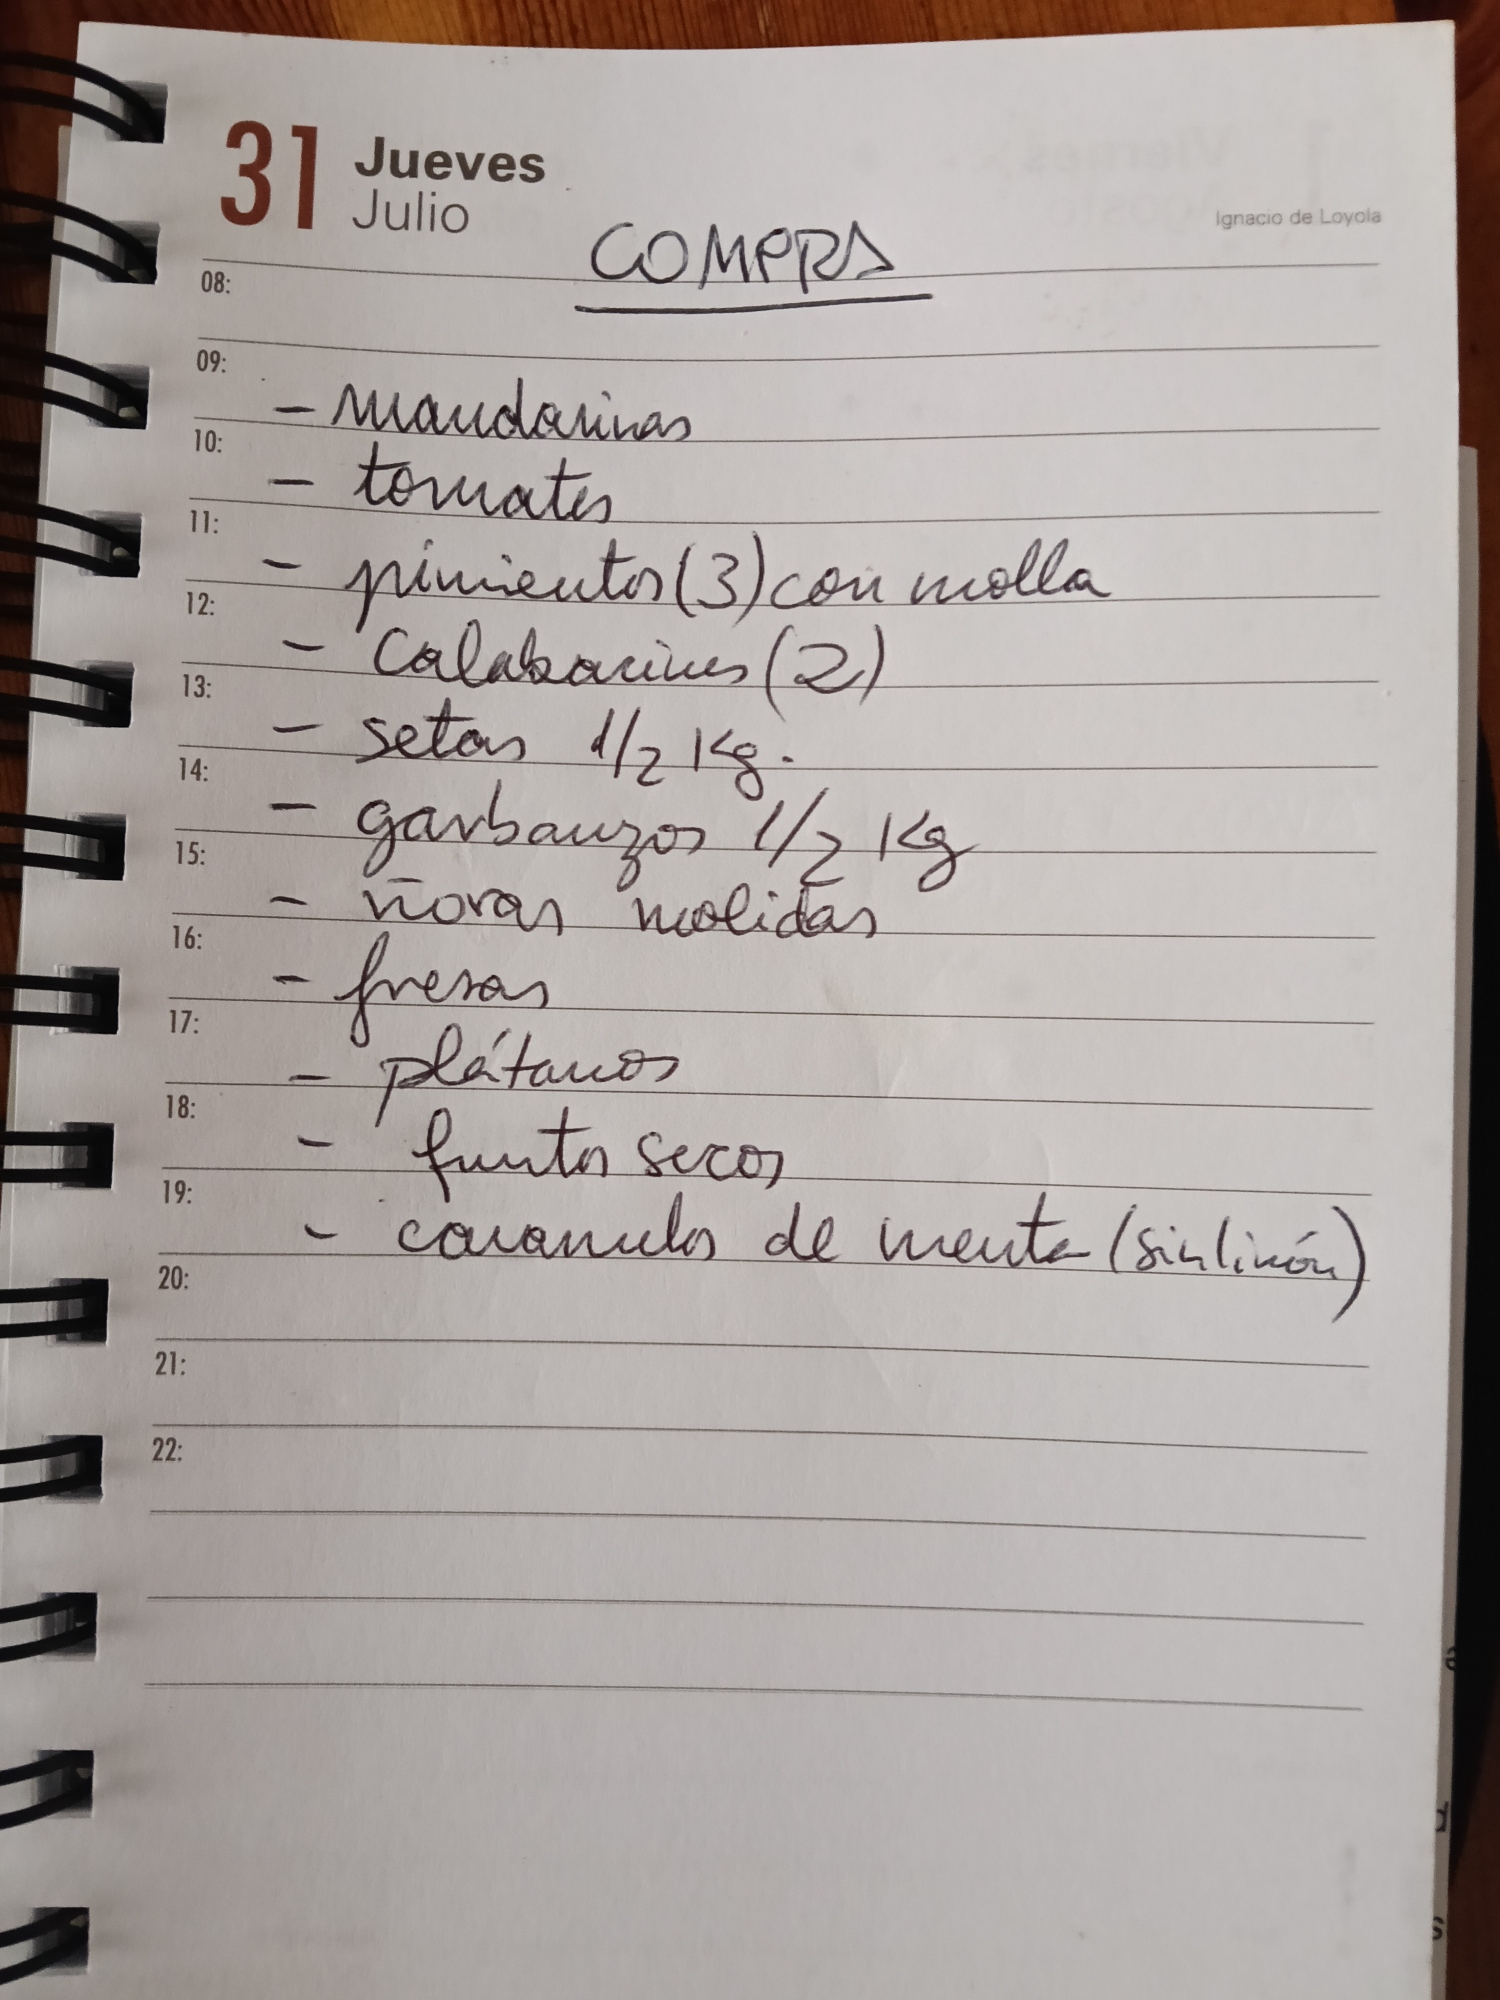 31 Jueves
Julio
Ignacio de Loyola
COMPRA
08:
09:
- mandarinas
10:
- tomates
11:
- pimientos (3) con molla
12:
- calabacines (2)
13:
- setas 1/2 Kg.
14:
- garbanzos 1/2 Kg
15:
- ñoras molidas
16:
- fresas
17:
- plátanos
18:
- frutos secos
19:
- caramelos de menta (sin limón)
20:
21:
22: